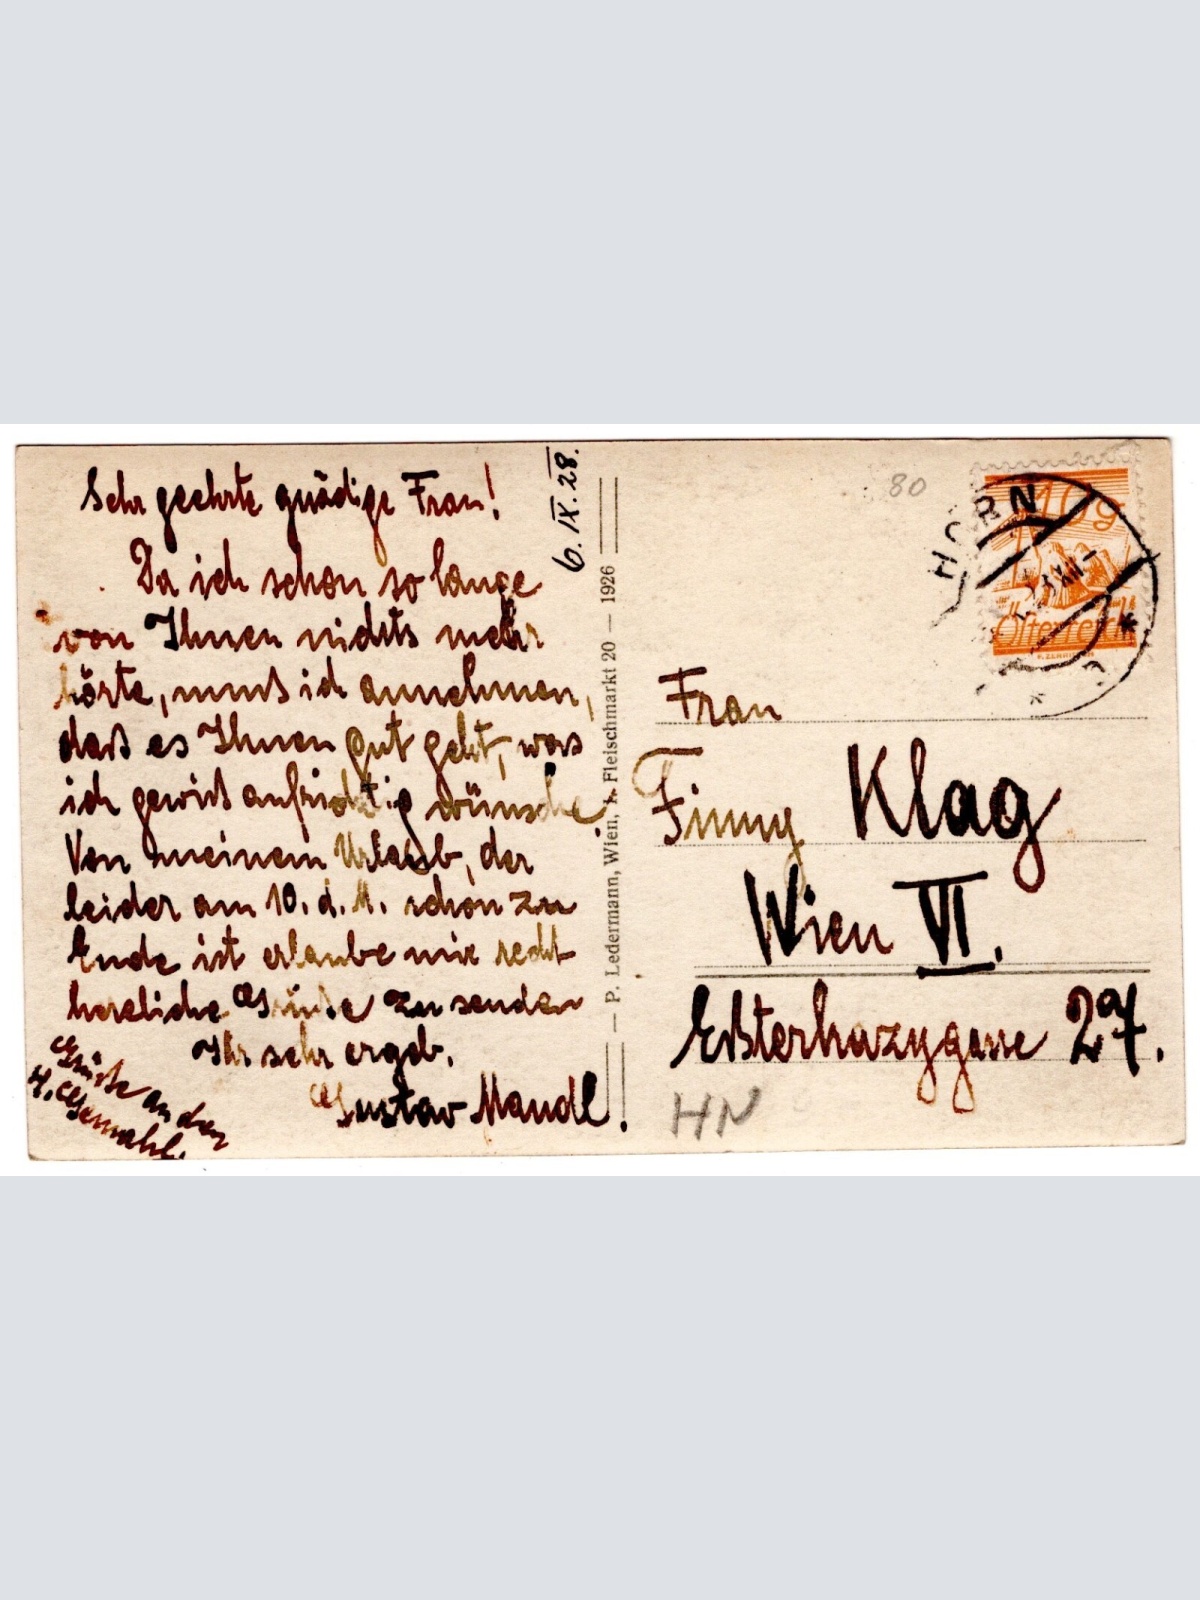 6. IX. 28.
Sehr geehrte gnädige Frau!
Da ich schon so lange
von Ihnen nichts mehr
hörte, muß ich annehmen,
daß es Ihnen gut geht, was
ich gewiß aufrichtig wünsche.
Von meinem Urlaub, der
leider am 10. d. M. schon zu
Ende ist erlaube mir recht
herzliche Grüße zu senden
Ihr sehr ergeb.
Gustav Mandl.
Grüße an den
H. Gemahl.
— P. Ledermann, Wien, I. Fleischmarkt 20 — 1926
80
HORN
10g
Österreich
Frau
Finny Klag
Wien VI.
Eßterhazygasse 27.
HN